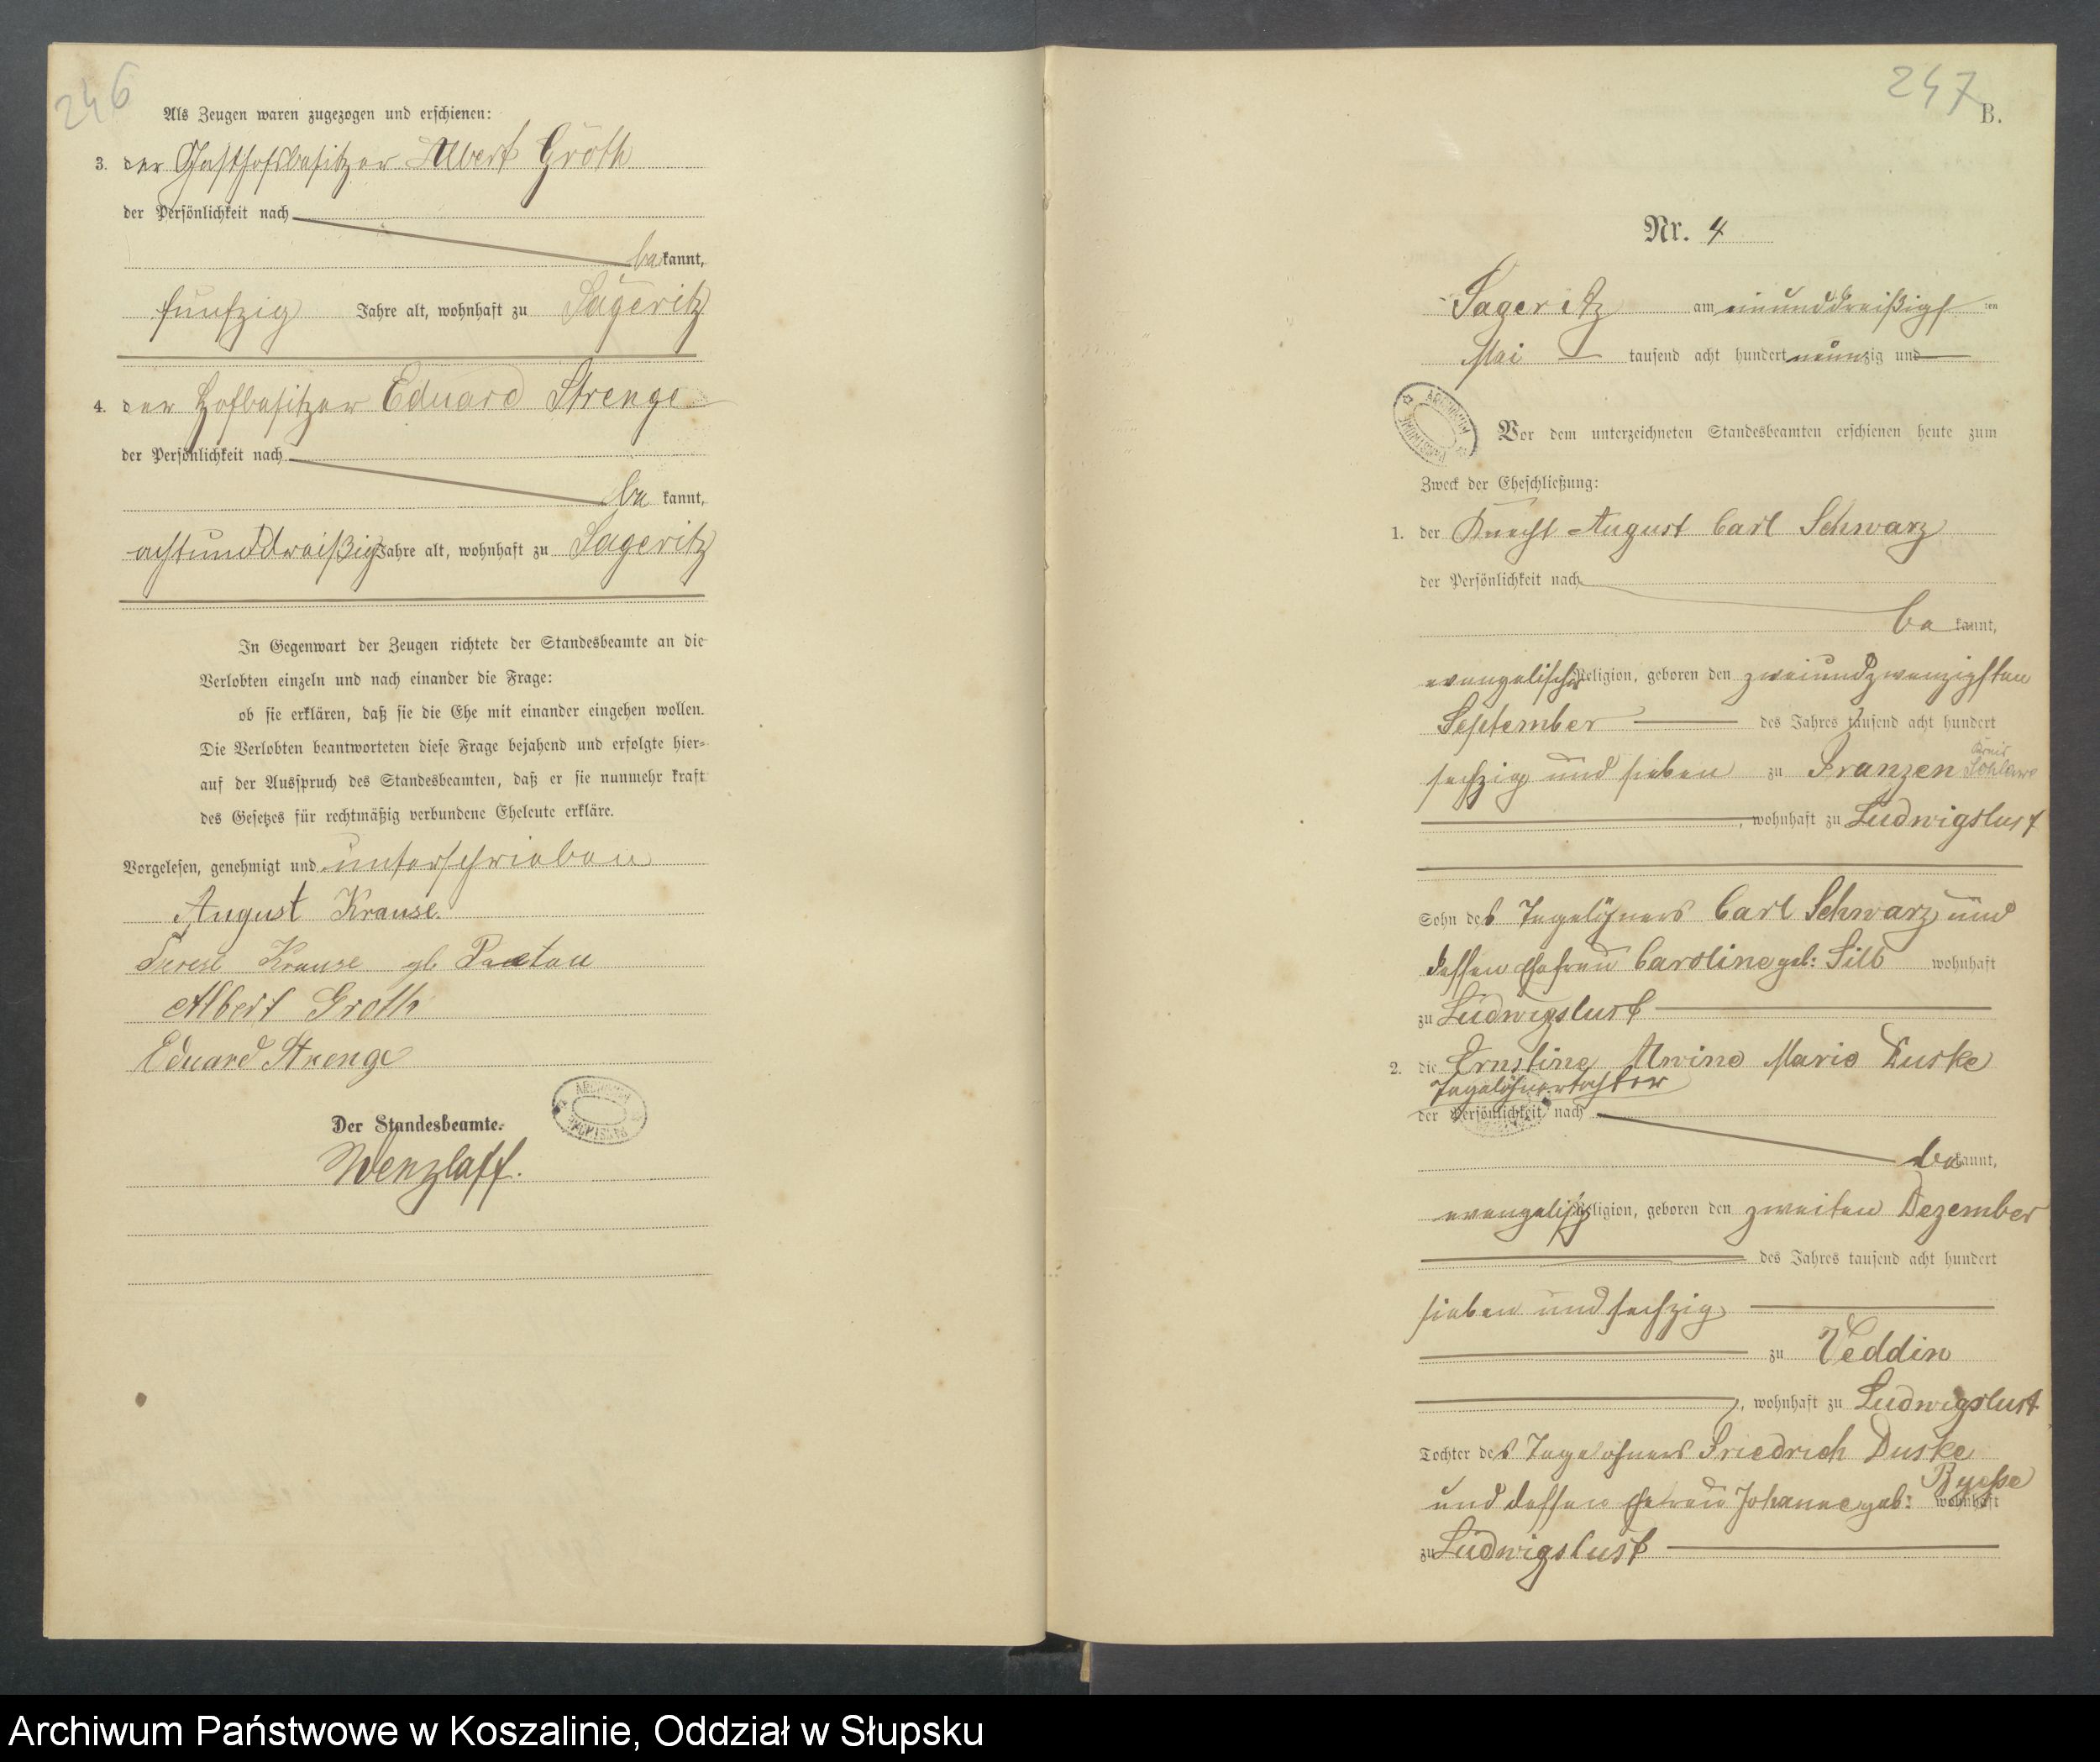 246
Als Zeugen waren zugezogen und erschienen:
3. der Gasthofsbesitzer Albert Groth
der Persönlichkeit nach
bekannt,
fünfzig Jahre alt, wohnhaft zu Sageritz
4. der Hofbesitzer Eduard Strenge
der Persönlichkeit nach
be kannt,
achtunddreißig Jahre alt, wohnhaft zu Sageritz
In Gegenwart der Zeugen richtete der Standesbeamte an die
Verlobten einzeln und nach einander die Frage:
ob sie erklären, daß sie die Ehe mit einander eingehen wollen.
Die Verlobten beantworteten diese Frage bejahend und erfolgte hier-
auf der Ausspruch des Standesbeamten, daß er sie nunmehr kraft
des Gesetzes für rechtmäßig verbundene Eheleute erkläre.
Vorgelesen, genehmigt und unterschrieben
August Krause.
Krause gb
Albert Groth
Eduard Strenge
Der Standesbeamte.
Wenzlaff.
247
B.
Nr. 4
Sageritz am einunddreißigsten
Mai tausend acht hundert neunzig und
ARCHIWUM PAŃSTWOWE
Vor dem unterzeichneten Standesbeamten erschienen heute zum
Zweck der Eheschließung:
1. der Knecht August Carl Schwarz
der Persönlichkeit nach
be kannt,
evangelischer Religion, geboren den zweiundzwanzigsten
September des Jahres tausend acht hundert
sechzig und sieben zu Franzen Kreis
Schlawe
, wohnhaft zu Ludwigslust
Sohn des Tagelöhners Carl Schwarz und
dessen Ehefrau Caroline geb: wohnhaft
zu Ludwigslust
2. die Ernstine Alwine Marie Duske
Tagelöhnertochter
der Persönlichkeit nach
bekannt,
evangelisch Religion, geboren den zweiten Dezember
des Jahres tausend acht hundert
sieben und sechzig
zu Veddin
, wohnhaft zu Ludwigslust
Tochter des Tagelöhners Friedrich Duske
und dessen Ehefrau Johanne geb: wohnhaft
zu Ludwigslust
Archiwum Państwowe w Koszalinie, Oddział w Słupsku